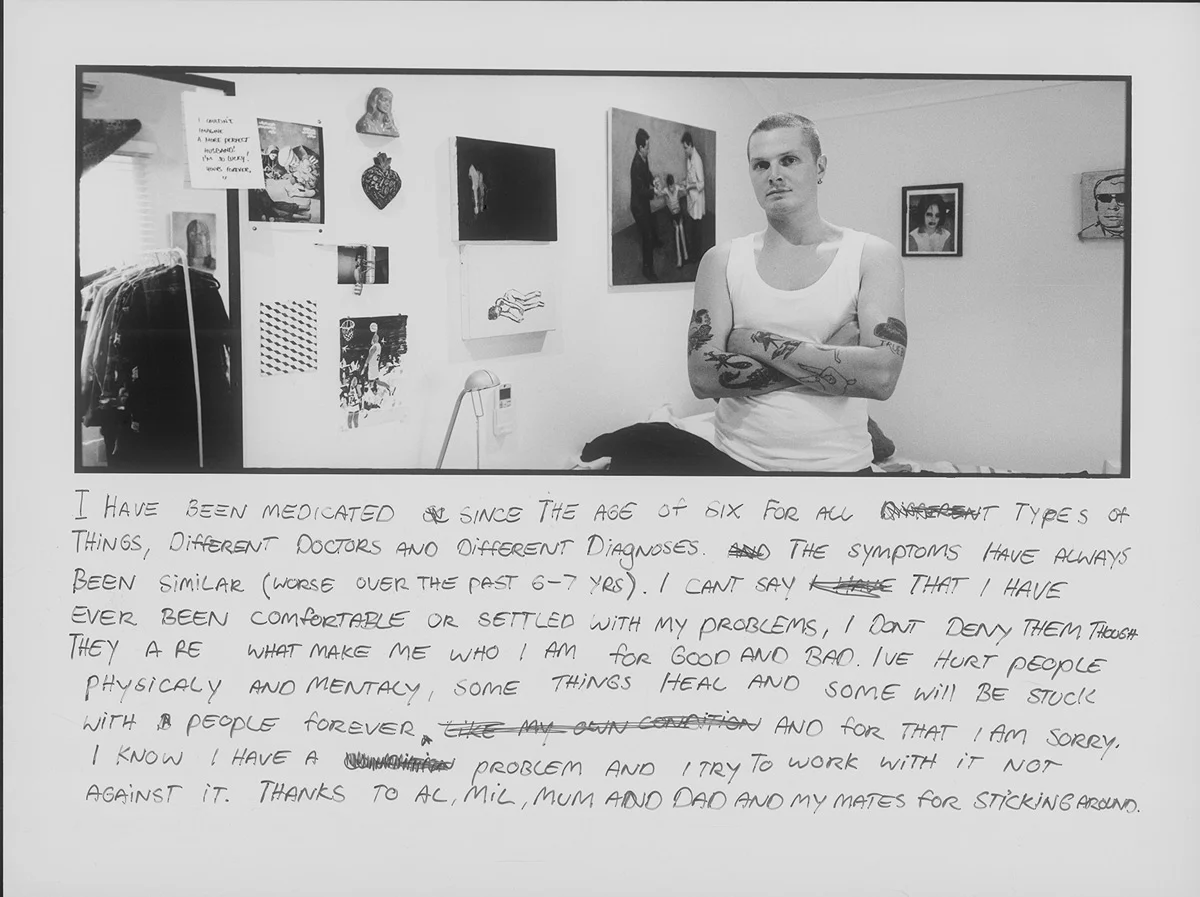 I COULDN'T
IMAGINE
A MORE PERFECT
HUSBAND!
I'M SO LUCKY!
YOURS FOREVER,
I HAVE BEEN MEDICATED SINCE THE AGE OF SIX FOR ALL DIFFERENT TYPES OF
THINGS, DIFFERENT DOCTORS AND DIFFERENT DIAGNOSES. AND THE SYMPTOMS HAVE ALWAYS
BEEN SIMILAR (WORSE OVER THE PAST 6-7 YRS). I CANT SAY I HAVE THAT I HAVE
EVER BEEN COMFORTABLE OR SETTLED WITH MY PROBLEMS, I DONT DENY THEM THOUGH
THEY ARE WHAT MAKE ME WHO I AM FOR GOOD AND BAD. IVE HURT PEOPLE
PHYSICALY AND MENTALY, SOME THINGS HEAL AND SOME WILL BE STUCK
WITH PEOPLE FOREVER, LIKE MY OWN CONDITION AND FOR THAT I AM SORRY.
I KNOW I HAVE A PROBLEM AND I TRY TO WORK WITH IT NOT
AGAINST IT. THANKS TO AL, MIL, MUM AND DAD AND MY MATES FOR STICKING AROUND.